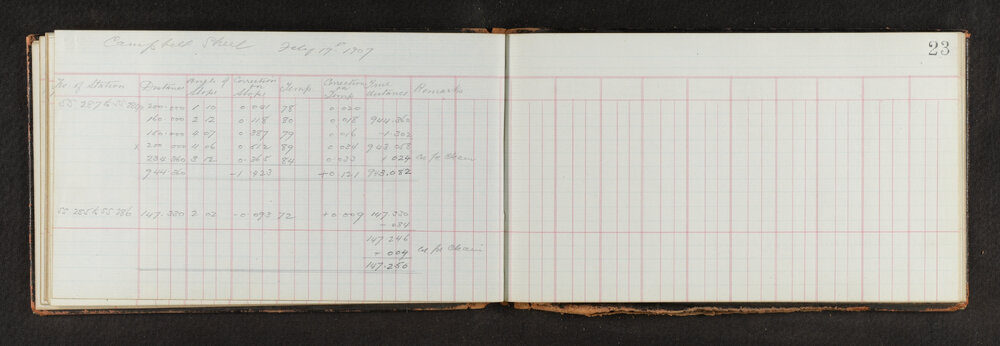 Campbell Street July 17th 1907
23
No. of Station Distance Angle of Slope Correction on Slope Temp Correction on Temp True distance Remarks
55 287 to 55 200.000 1 10 0.041 78 0.020
160.000 2 12 0.118 80 0.018 944.360
150.000 4 07 0.387 79 0.016 -1.302
x 200.000 4 06 0.512 89 0.034 943.058
234.360 3 12 0.365 84 0.033 1.024 Cor for Chain
944.360 -1.423 +0.121 943.082
55 285 to 55 286 147.330 2 02 -0.093 72 +0.009 147.330
-.084
147.246
+.004 Cor for Chain
147.250